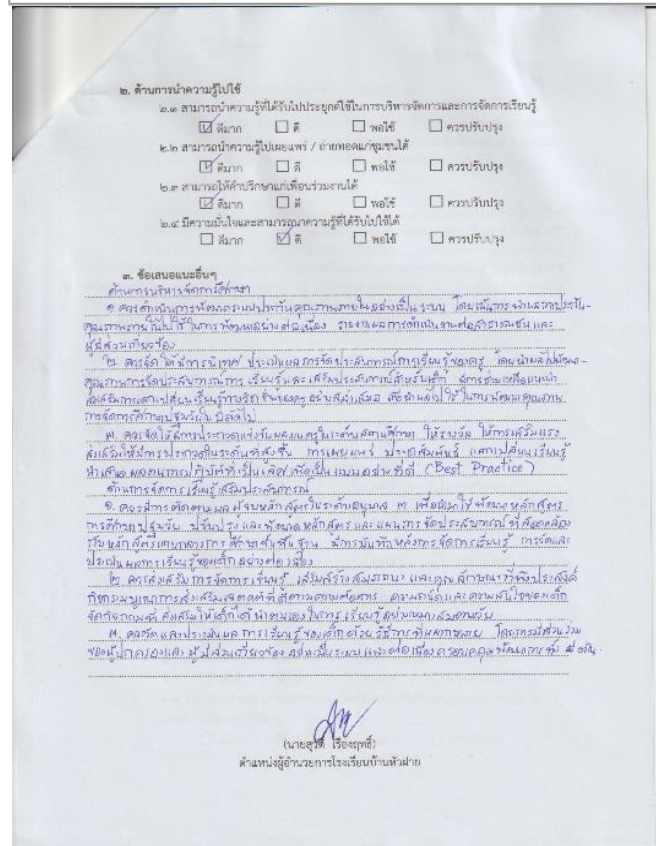 ๒. ด้านการนำความรู้ไปใช้
๒.๑ สามารถนำความรู้ที่ได้รับไปประยุกต์ใช้ในการบริหารจัดการและการจัดการเรียนรู้
☑ ดีมาก ☐ ดี ☐ พอใช้ ☐ ควรปรับปรุง
๒.๒ สามารถนำความรู้ไปเผยแพร่ / ถ่ายทอดแก่ชุมชนได้
☑ ดีมาก ☐ ดี ☐ พอใช้ ☐ ควรปรับปรุง
๒.๓ สามารถให้คำปรึกษาแก่เพื่อนร่วมงานได้
☑ ดีมาก ☐ ดี ☐ พอใช้ ☐ ควรปรับปรุง
๒.๔ มีความมั่นใจและสามารถนำความรู้ที่ได้รับไปใช้ได้
☐ ดีมาก ☑ ดี ☐ พอใช้ ☐ ควรปรับปรุง
๓. ข้อเสนอแนะอื่นๆ
ด้านการบริหารจัดการศึกษา
๑ ควรดำเนินการพัฒนาระบบประกันคุณภาพภายในอย่างเป็นระบบ โดยเน้นการนำผลการประกัน-
คุณภาพภายในไปใช้ในการพัฒนาอย่างต่อเนื่อง รายงานผลการดำเนินงานต่อสาธารณชนและ
ผู้มีส่วนเกี่ยวข้อง
๒. ควรจัดให้มีการนิเทศ ประเมินผลการจัดประสบการณ์การเรียนรู้ของครู โดยนำผลไปพัฒนา-
คุณภาพการจัดประสบการณ์การเรียนรู้และเสริมประสบการณ์สำหรับเด็ก มีการช่วยเหลือแนะนำ
ส่งเสริมการแลกเปลี่ยนเรียนรู้ทางวิชาชีพของครูอย่างสม่ำเสมอ เพื่อนำผลไปใช้ในการพัฒนาคุณภาพ
การจัดการศึกษาปฐมวัยในปีต่อไป
๓. ควรจัดให้มีการประกวดแข่งขันผลงานครูในระดับสถานศึกษา ให้รางวัล ให้การเสริมแรง
ส่งเสริมให้มีการประกวดในระดับที่สูงขึ้น การเผยแพร่ ประชาสัมพันธ์ แลกเปลี่ยนเรียนรู้
นำเสนอผลงานการปฏิบัติที่เป็นเลิศ เพื่อเป็นแบบอย่างที่ดี (Best Practice)
ด้านการจัดการเรียนรู้เสริมประสบการณ์
๑. ควรมีการติดตามผลผู้จบหลักสูตรในระดับอนุบาล ๓ เพื่อนำมาใช้พัฒนาหลักสูตร
การศึกษาปฐมวัย ปรับปรุงและพัฒนาหลักสูตร และแผนการจัดประสบการณ์ที่สอดคล้อง
กับหลักสูตรแกนกลางการศึกษาขั้นพื้นฐาน มีการบันทึกหลังการจัดการเรียนรู้ การวัดและ
ประเมินผลการเรียนรู้ของเด็กอย่างต่อเนื่อง
๒. ควรส่งเสริมการจัดการเรียนรู้ เสริมสร้างสมรรถนะ และคุณลักษณะที่พึงประสงค์
กิจกรรมบูรณาการส่งเสริมเจตคติที่ดีตามความต้องการ ความถนัดและความสนใจของเด็ก
จัดกิจกรรมที่ส่งเสริมให้เด็กได้นำตนเองในการเรียนรู้อย่างเหมาะสมตามวัย
๓. ควรวัดและประเมินผลการเรียนรู้ของเด็กด้วยวิธีการที่หลากหลาย โดยการมีส่วนร่วม
ของผู้ปกครองและผู้มีส่วนเกี่ยวข้อง อย่างเป็นระบบและต่อเนื่อง ครอบคลุมพัฒนาการทั้ง ๔ ด้าน
(นายสุวิ เรืองฤทธิ์)
ตำแหน่งผู้อำนวยการโรงเรียนบ้านหัวฝาย